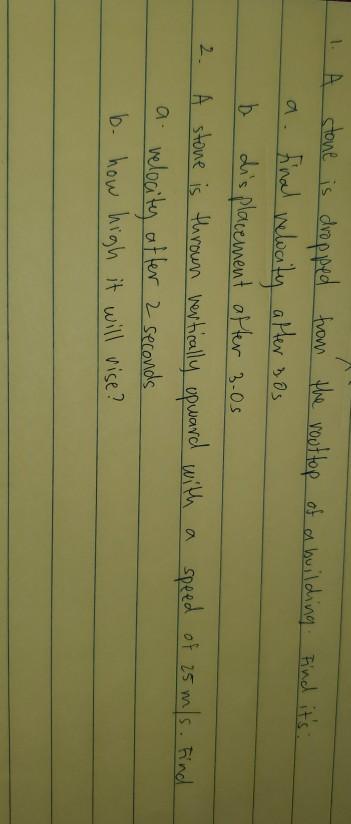 1. A stone is dropped from the rooftop of a building. Find it's:
a. Final velocity after 3.0s
b displacement after 3.0s
2. A stone is thrown vertically upward with a speed of 25 m/s. Find
a. velocity after 2 seconds
b. how high it will rise?